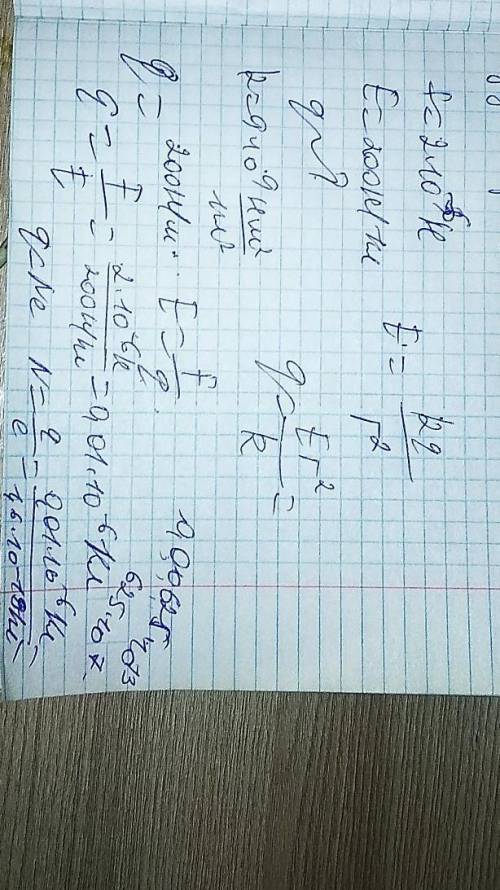 F=2·10⁻⁶Н
E=200Н/Кл
q-?
E = kq/r²
k=9·10⁹ Нм²/Кл²
q = Er²/k =
q =
200Н/Кл · E = F/q.
q = F/E = 2·10⁻⁶Н/200Н/Кл = 0,01·10⁻⁶Кл
q=Ne N = q/e = 0,01·10⁻⁶Кл/1,6·10⁻¹⁹Кл =
0,00625·10¹³
625·10⁸.